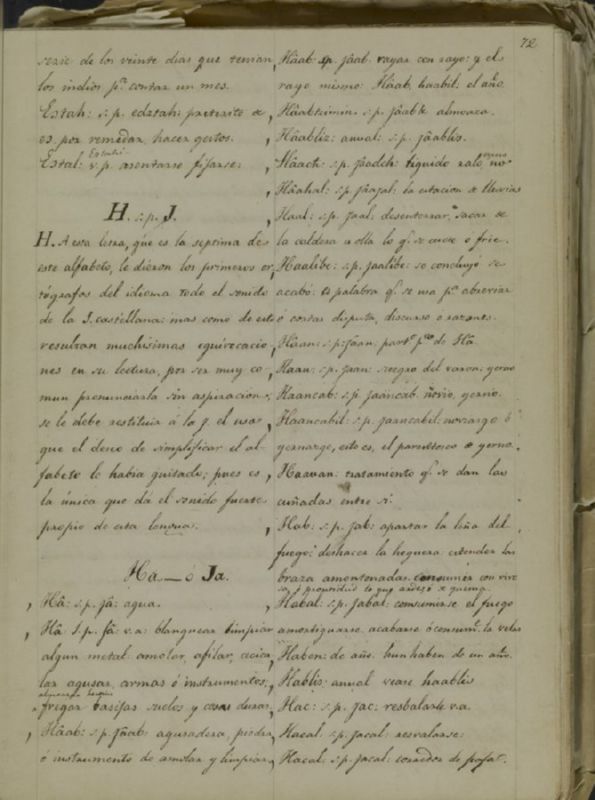 72
serie de los veinte dias que tenian
los indios pª contar un mes.
Estah: s.p. edztah: preterito de
es. por remedar, hacer gestos.
Estal: v.p. asentarse fijarse:
H. s.p. J.
H. A esta letra, que es la septima de
este alfabeto, le dieron los primeros or
tógrafos del idioma todo el sonido
de la J. castellana: mas como de esto
resultan muchisimas equivocacio
nes en su lectura, por ser muy co
mun pronunciarla sin aspiracion,
se le debe restituir á la j. el usar
que el deseo de simplificar el al-
fabeto le habia quitado; pues es
la única que dá el sonido fuerte
propio de esta lengua.
Ha — ó Ja.
Hâ: s.p. jâ: agua.
Hâ s.p. jâ: v.a: blanquear limpiar
algun metal amolar, afilar, acica
lar aguzar, armas ó instrumentos,
fregar basijas suelos y cosas duras,
Hâab: s.p. jâab: aguzadera, piedra
ó instrumento de amolar y limpiar,
Hâab: s.p. jâab. rayar con rayo: y el
rayo mismo: Hâab, haabil: el año
Hâabteimin: s.p. jâabte almoaza.
Hâabliz: anual: s.p. jâabliz.
Hâach: s.p. jâadch: liquido ralo, no
Hâahal: s.p. jâajal: la estacion de lluvias
Haal: s.p. jaal: desenterrar, sacar de
la caldera u olla lo q. se cuese ó frie.
Haalibe: s.p. jaalibe: se concluyó se
acabó: es palabra q. se usa pª abreviar
ó cortar disputa, discurso ó razones.
Hâan: s.p: jâan: partº pº de Hâ.
Haan: s.p. jaan: suegro del varon; yerno
Haancab: s.p. jaancab. novio, yerno.
Haancabil: s.p. jaancabil: noviazgo ó
yernazgo, esto es, el parentesco de yerno.
Haavan: tratamiento q. se dan las
cuñadas entre si.
Hab: s.p. jab: apartar la leña del
fuego: deshacer la hoguera: estender las
braza amontonadas. consumir con vive
Habal: s.p. jabal: consumirse el fuego
amortiguarse. acabarse ó consumº. la velas
Haben: de año. hun haben de un año.
Hablis: anual vease haablis
Hac: s.p. jac: resbalarse v.a.
Hacal: s.p. jacal: resvalarse:
Hacal: s.p. jacal: corredor de